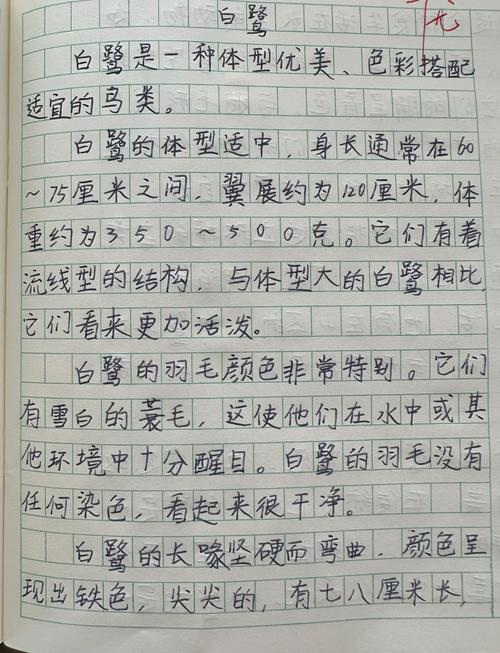 白鹭
优
白鹭是一种体型优美、色彩搭配
适宜的鸟类。
白鹭的体型适中，身长通常在60
~75厘米之间，翼展约为120厘米，体
重约为350~500克。它们有着
流线型的结构，与体型大的白鹭相比，
它们看来更加活泼。
白鹭的羽毛颜色非常特别。它们
有雪白的蓑毛，这使他们在水中或其
他环境中十分醒目。白鹭的羽毛没有
任何染色，看起来很干净。
白鹭的长喙坚硬而弯曲，颜色呈
现出铁色，尖尖的，有七八厘米长，